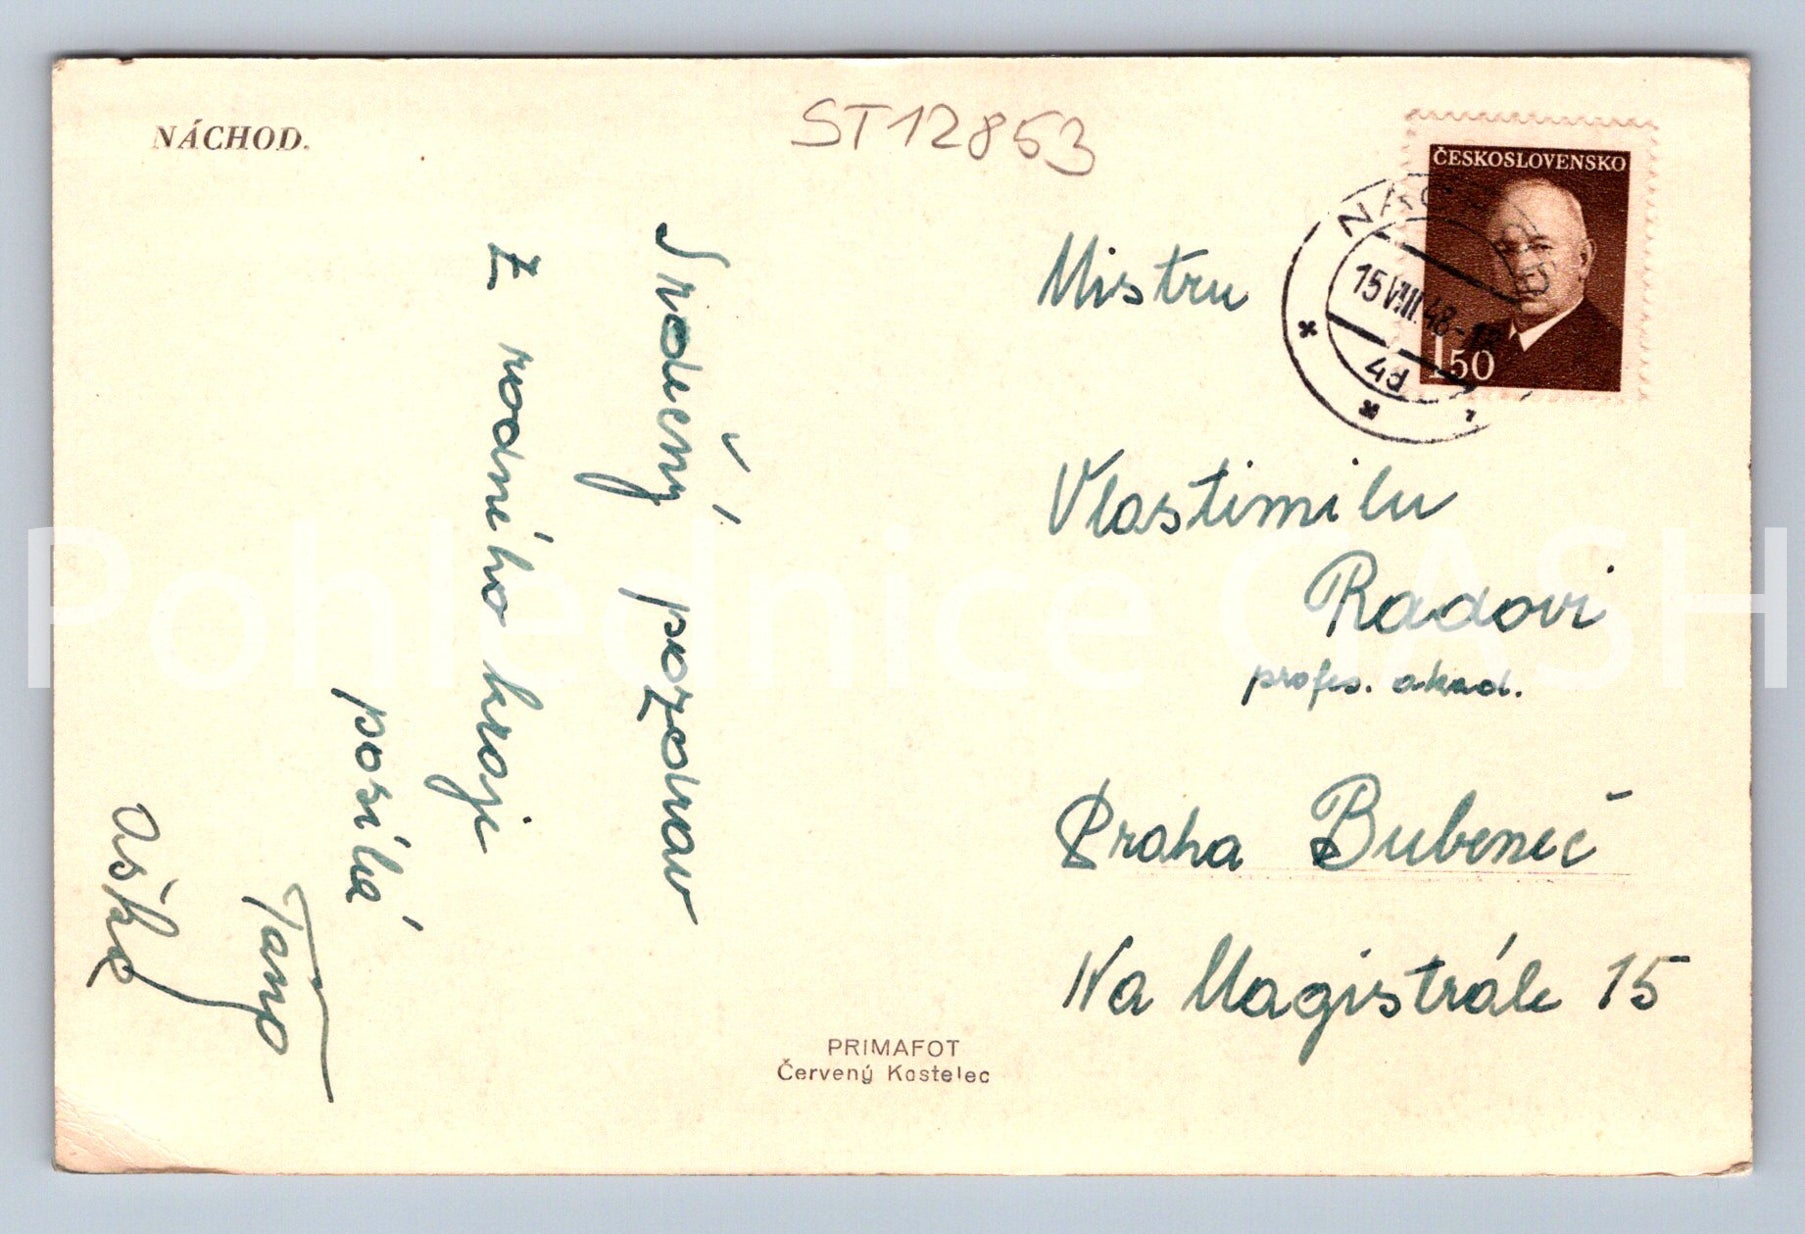 NÁCHOD.
ST12853
ČESKOSLOVENSKO
150
15.VIII.48-
4d
Srdečný pozdrav
z rodného kraje
posílá
Mistru
Vlastimilu
Radovi
profes. akad.
Praha Bubeneč
Na Magistrále 15
PRIMAFOT
Červený Kostelec
Pohlednice CASH